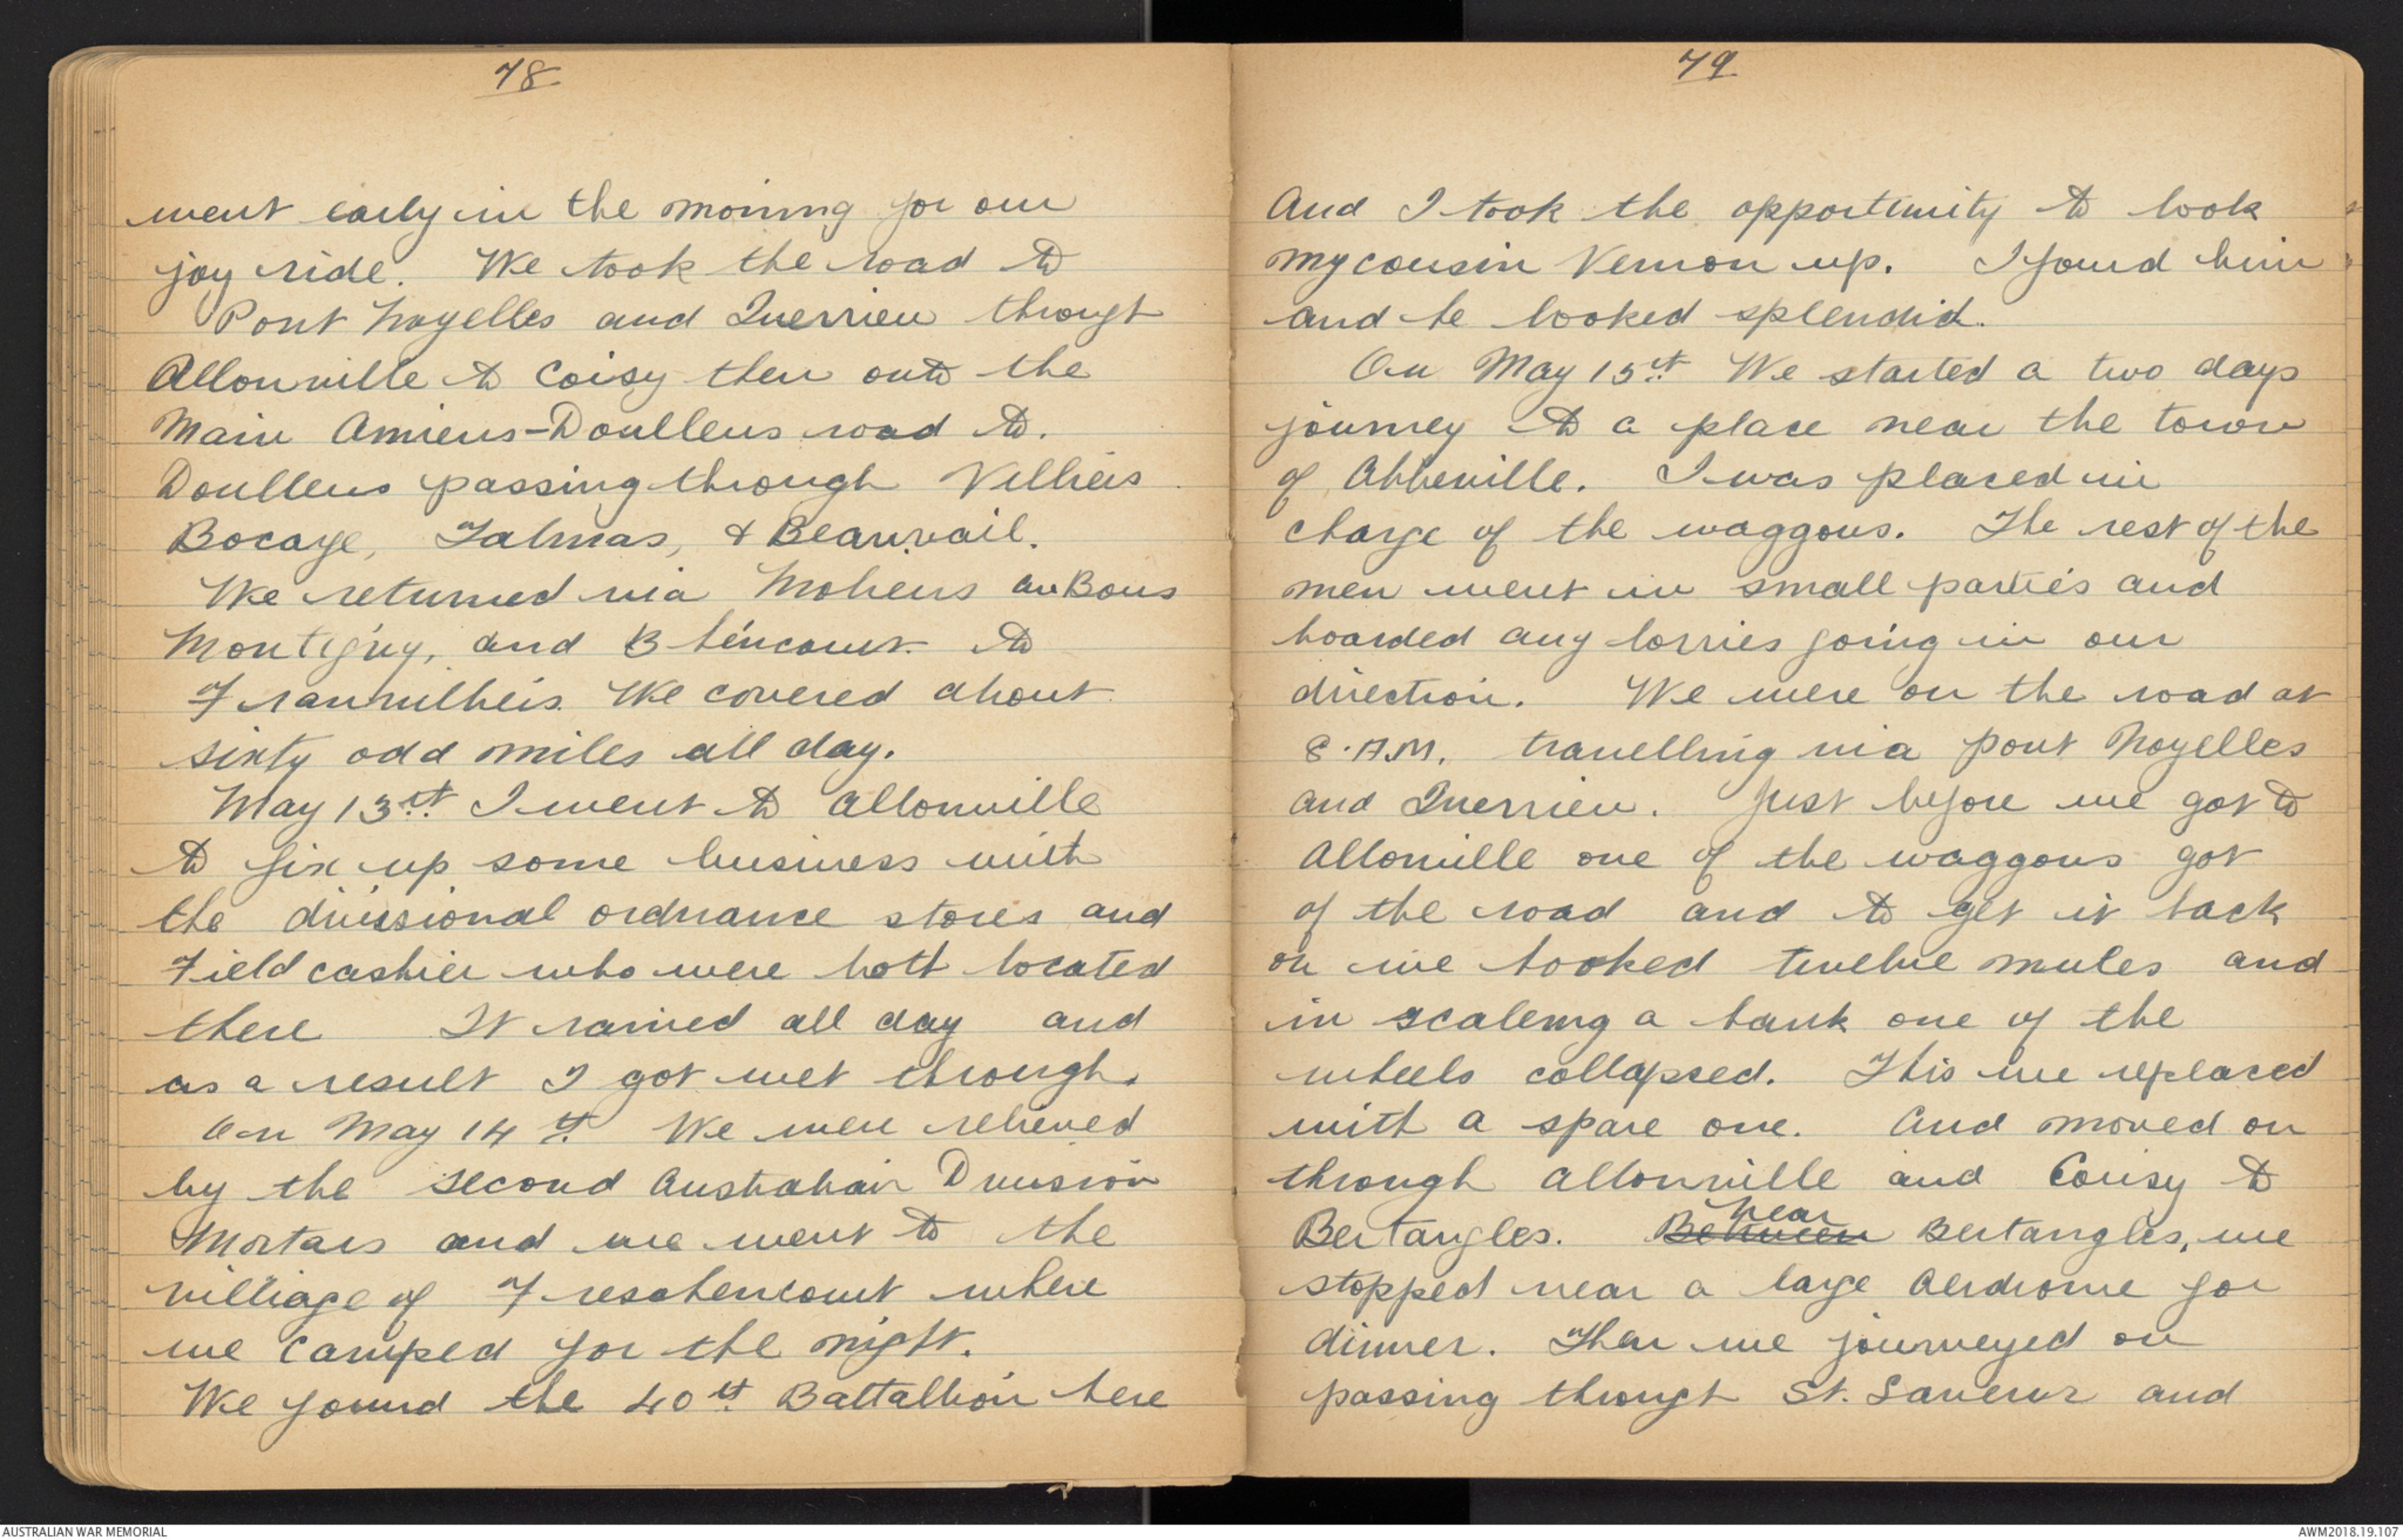 78
went early in the morning for our
joy ride. We took the road to
Pont Noyelles and Querrieu throught
Allonville to Coisy then onto the
Main Amiens-Doullens road to.
Doullens passing through Villiers
Bocage, Talmas, & Beauvail.
We returned via Moliens au Bous
Montigny, and Béhencourt to
Franvilliers. We covered about
sixty odd miles all day.
May 13th I went to Allonville
to fix up some business with
the divisional ordnance stores and
Field cashier who were both located
there It rained all day and
as a result I got wet through.
On May 14th We were relieved
by the second Australian Division
Mortars and we went to the
villiage of Freschencourt where
we camped for the night.
We found the 40th Battallion here
79
And I took the opportunity to look
my cousin Vernon up. I found him
and he looked splendid.
On May 15th We started a two days
journey to a place near the town
of Abbeville. I was placed in
charge of the waggons. The rest of the
men went in small parties and
boarded any lorries going in our
direction. We were on the road at
8.A.M. travelling via pont Noyelles
and Querrieu. Just before we got to
Allonville one of the waggons got
of the road and to get it back
on we hooked twelve mules and
in scaleing a bank one of the
wheels collapsed. This we replaced
with a spare one. And moved on
through Allonville and Coisy to
Bertangles. Between near Bertangles, we
stopped near a large Aerdrome for
dinner. Then we journeyed on
passing throught St. Saveur and
AUSTRALIAN WAR MEMORIAL
AWM2018.19.107